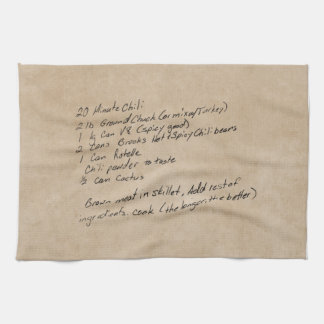 20 Minute Chili
2 lb Ground Chuck (or mix w/Turkey)
1 ½ Can V8 (spicy good)
2 Cans Brooks Hot & Spicy Chili beans
1 Can Rotelle
Chili powder to taste
½ can Cactus
Brown meat in skillet, Add rest of
ingredients. Cook (the longer the better)